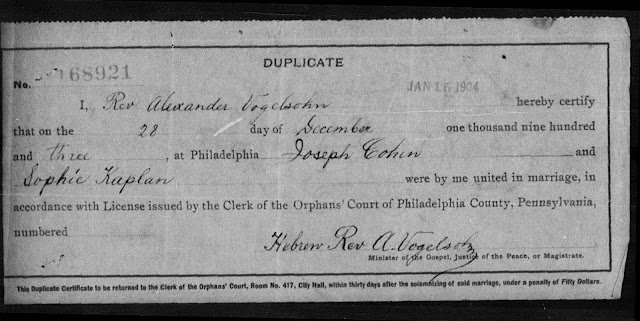 DUPLICATE
No. 168921
JAN 15 1904
I, Rev Alexander Vogelsohn hereby certify
that on the 28 day of December one thousand nine hundred
and three, at Philadelphia Joseph Cohen and
Sophie Kaplan were by me united in marriage, in
accordance with License issued by the Clerk of the Orphans' Court of Philadelphia County, Pennsylvania,
numbered
Hebrew Rev A. Vogelsohn
Minister of the Gospel, Justice of the Peace, or Magistrate.
This Duplicate Certificate to be returned to the Clerk of the Orphans' Court, Room No. 417, City Hall, within thirty days after the solemnizing of said marriage, under a penalty of Fifty Dollars.